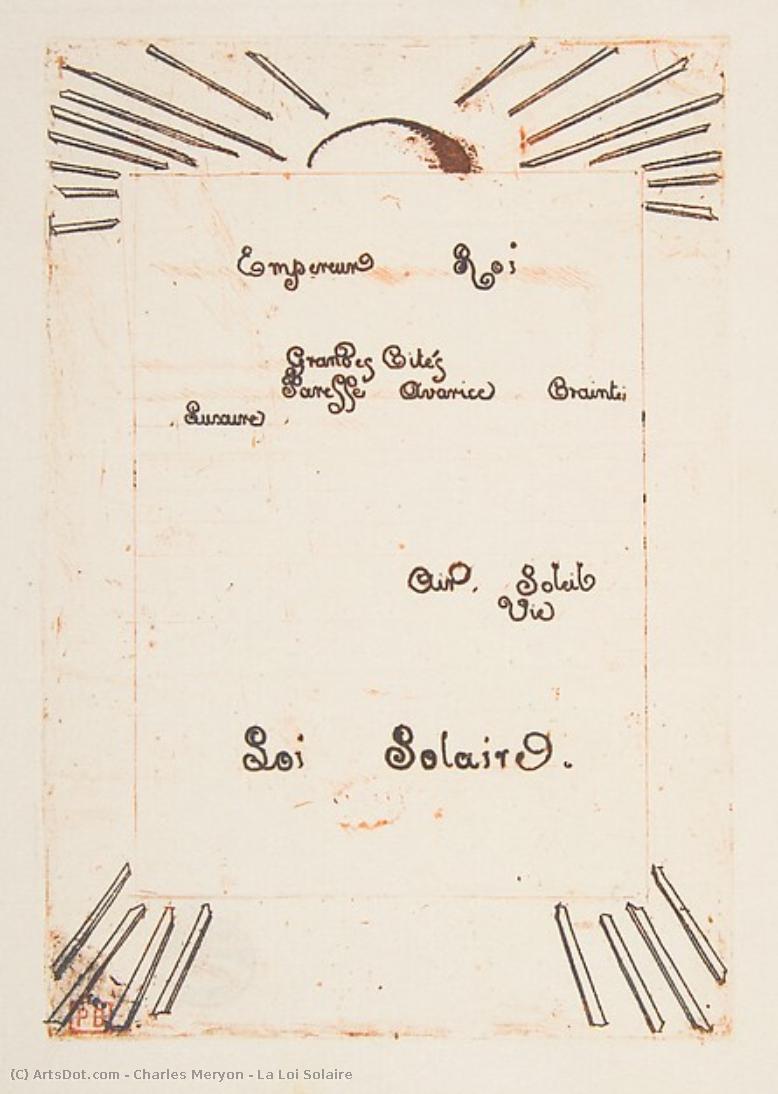 Empereur Roi
Grandes Cités
Paresse Avarice Crainte
Luxure
Air. Soleil
Vie
Loi Solaire.
PB
(C) ArtsDot.com - Charles Meryon - La Loi Solaire